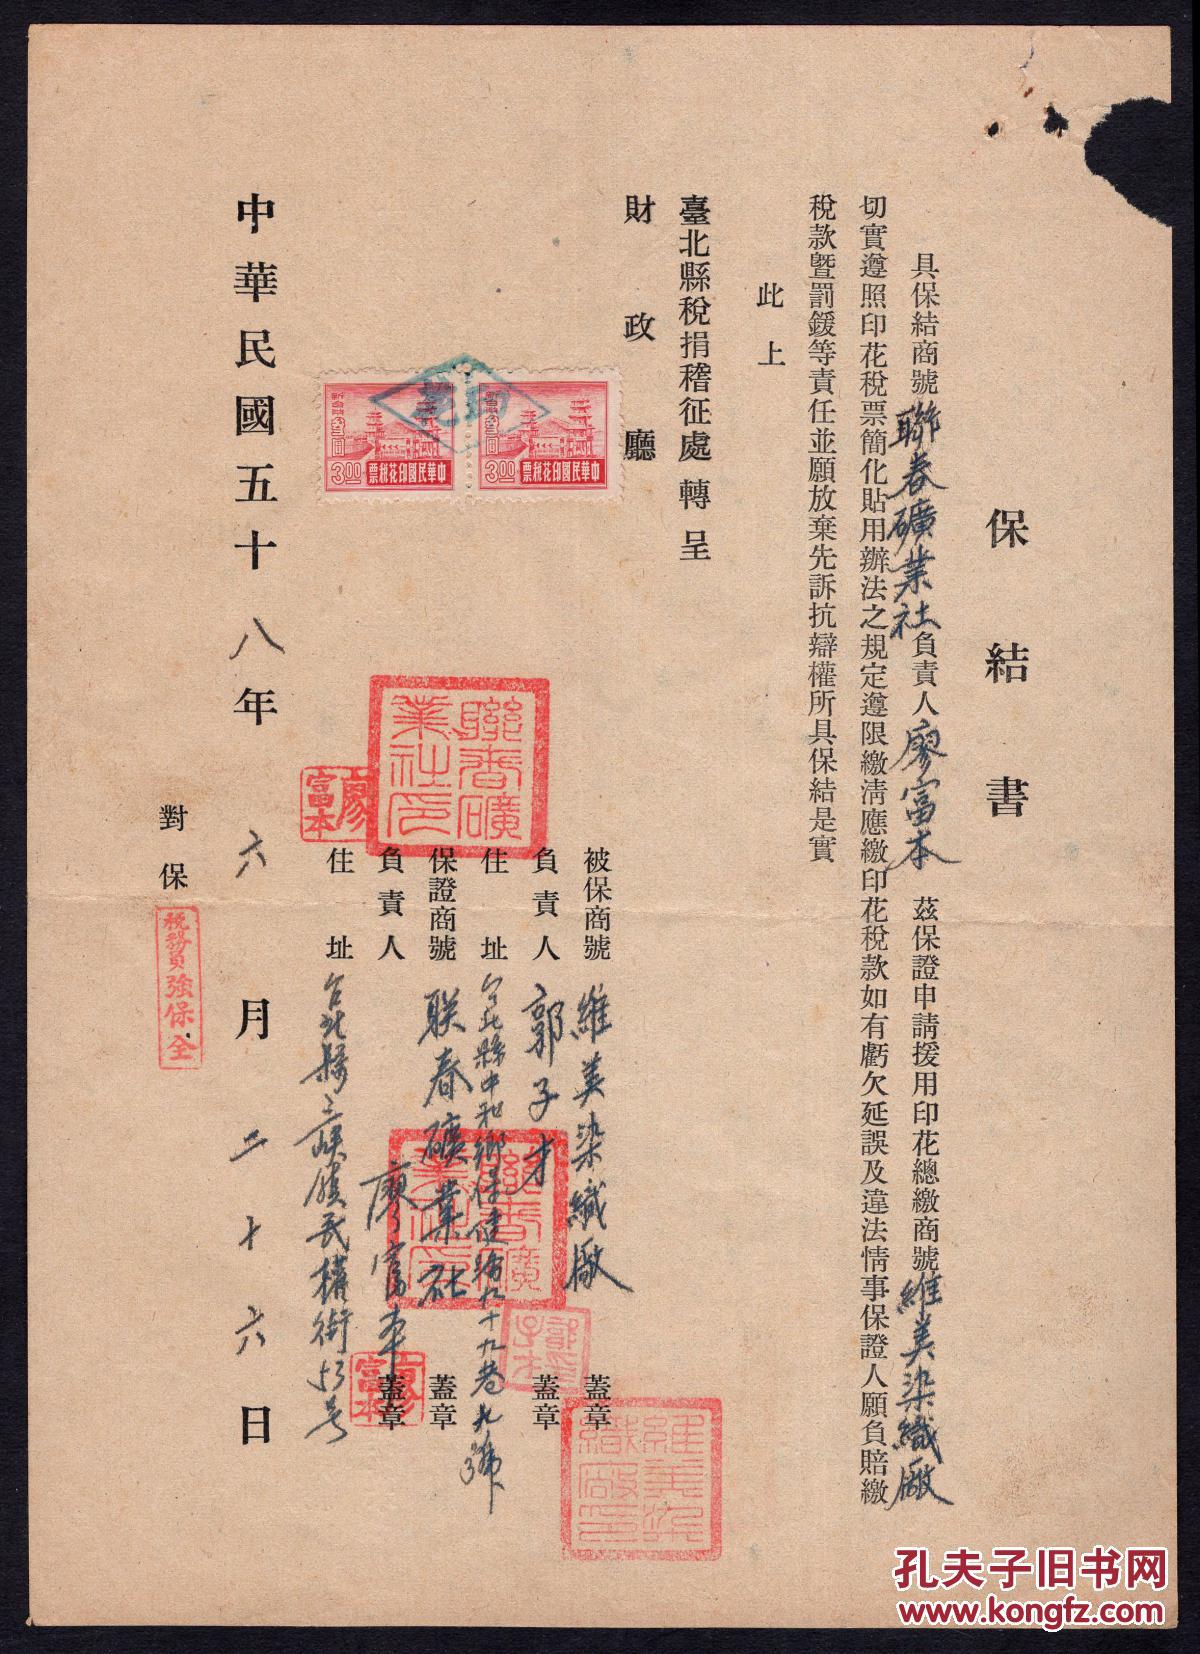 保結書
具保結商號聯春礦業社負責人廖富本茲保證申請援用印花總繳商號維美染織廠
切實遵照印花稅票簡化貼用辦法之規定遵限繳清應繳印花稅款如有虧欠延誤及違法情事保證人願負賠繳
稅款暨罰鍰等責任並願放棄先訴抗辯權所具保結是實
此上
臺北縣稅捐稽征處轉呈
財政廳
被保商號維美染織廠蓋章
負責人郭子才蓋章
住址台北縣中和鄉保健路九十九巷九號
保證商號联春礦業社蓋章
負責人廖富本蓋章
住址台北縣三峽鎮民權街53号
中華民國五十八年六月二十六日
對保
稅務員強保全
中華民國印花稅票
3.00
中華民國印花稅票
3.00
聯春礦業社印
廖富本
維美染織廠印
孔夫子旧书网
www.kongfz.com